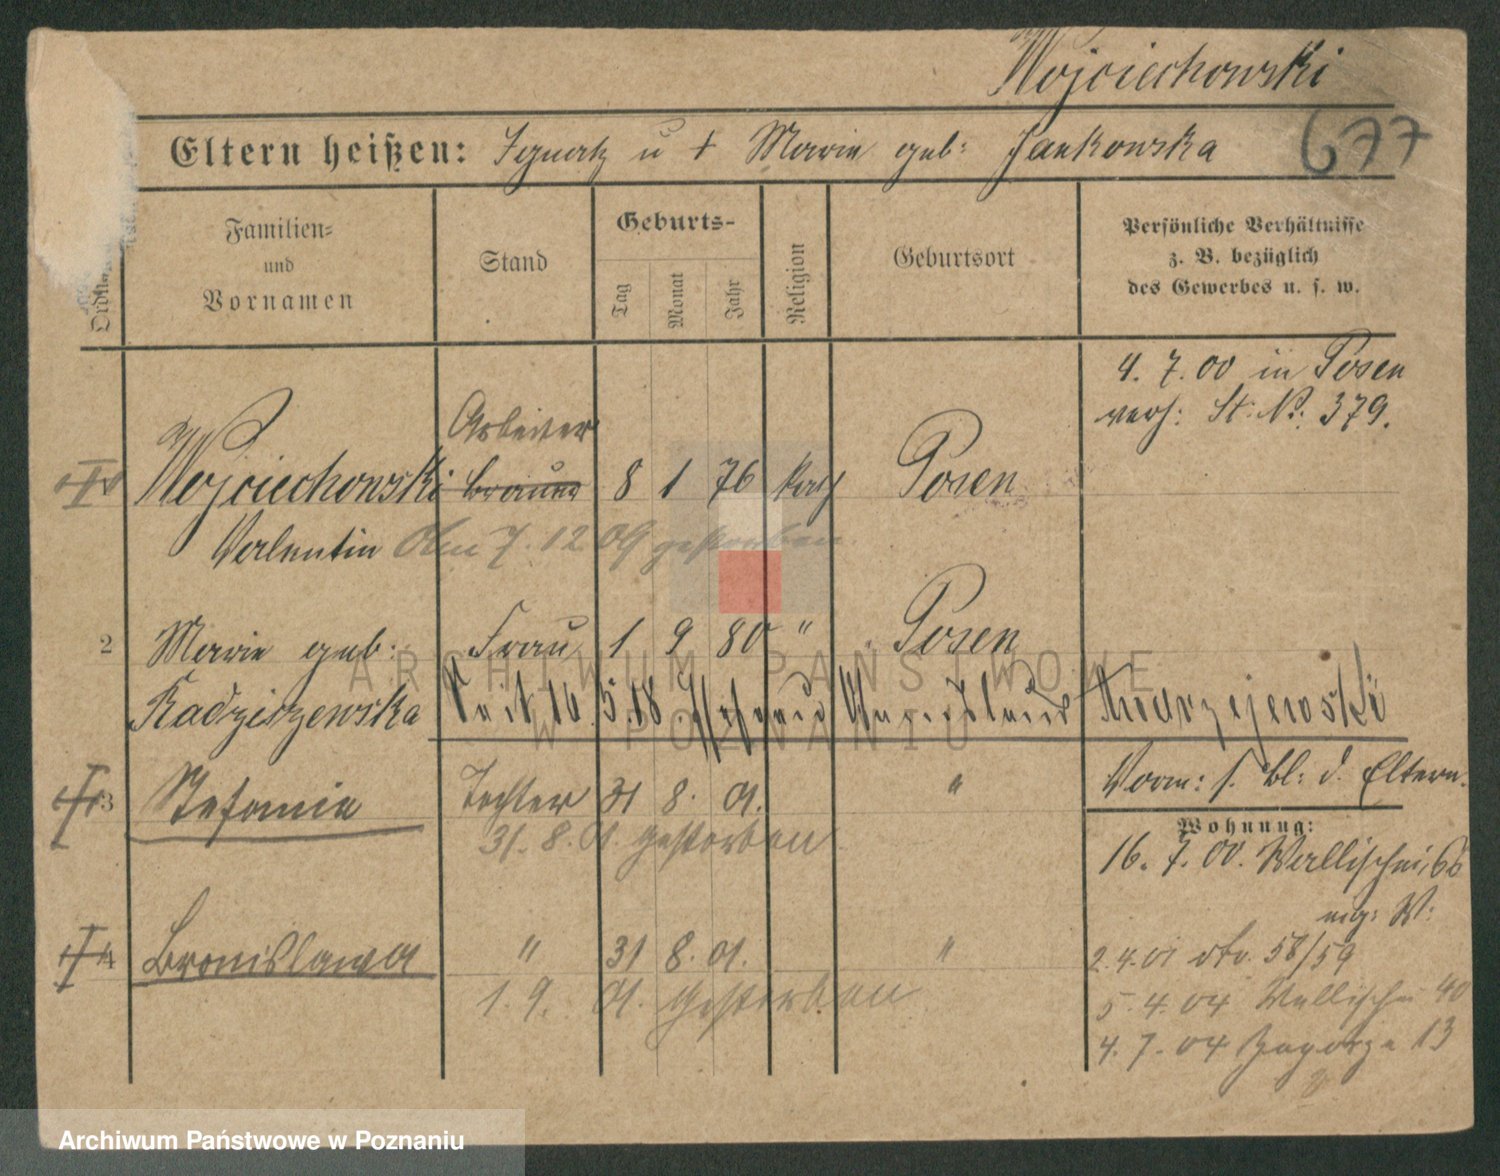 Wojciechowski
677
Eltern heißen: Ignatz u + Marie geb: Jankowska
Familien-
und
Vornamen
Stand
Geburts-
Tag
Monat
Jahr
Religion
Geburtsort
Persönliche Verhältnisse
z. B. bezüglich
des Gewerbes u. s. w.
4. 7. 00 in Posen
verh: St: No: 379.
Arbeiter
I Wojciechowski 8 1 76 kath Posen
Valentin Am 7. 12. 09 gestorben.
2 Marie geb: Frau 1 9 80 " Posen
Kadziszewska Seit 10.5.18 Andrzejewski
3 Stefania Tochter 31 8. 01. "
31. 8. 01. gestorben.
Vorm: s. bl: d. Eltern.
Wohnung:
16. 7. 00. Wallischei 66
4 Bronislawa " 31 8. 01. "
1. 9. 01. gestorben
2. 4. 01 dto. 58/59
5. 4. 04 Wallischei 40
4. 7. 04 Zagorze 13
ARCHIWUM PAŃSTWOWE
W POZNANIU
Archiwum Państwowe w Poznaniu